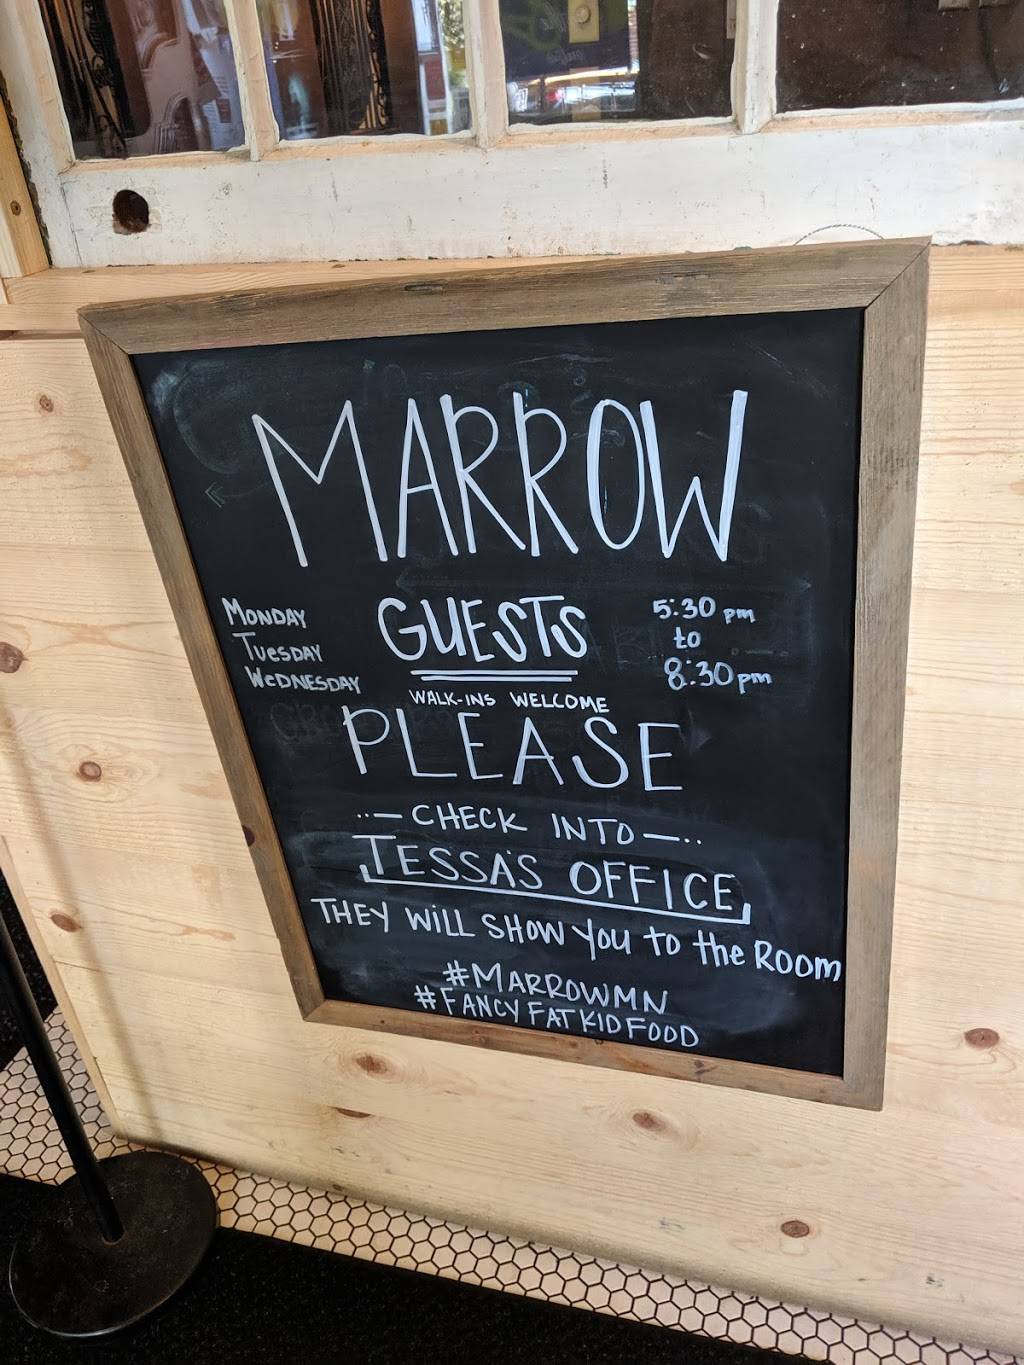 MARROW
MONDAY
TUESDAY
WEDNESDAY
GUESTS
5:30 pm
to
8:30 pm
WALK-INS WELCOME
PLEASE
CHECK INTO
TESSA'S OFFICE
THEY WiLL SHOW YOU to the ROOM
#MARROWMN
#FANCY FAT KID FOOD